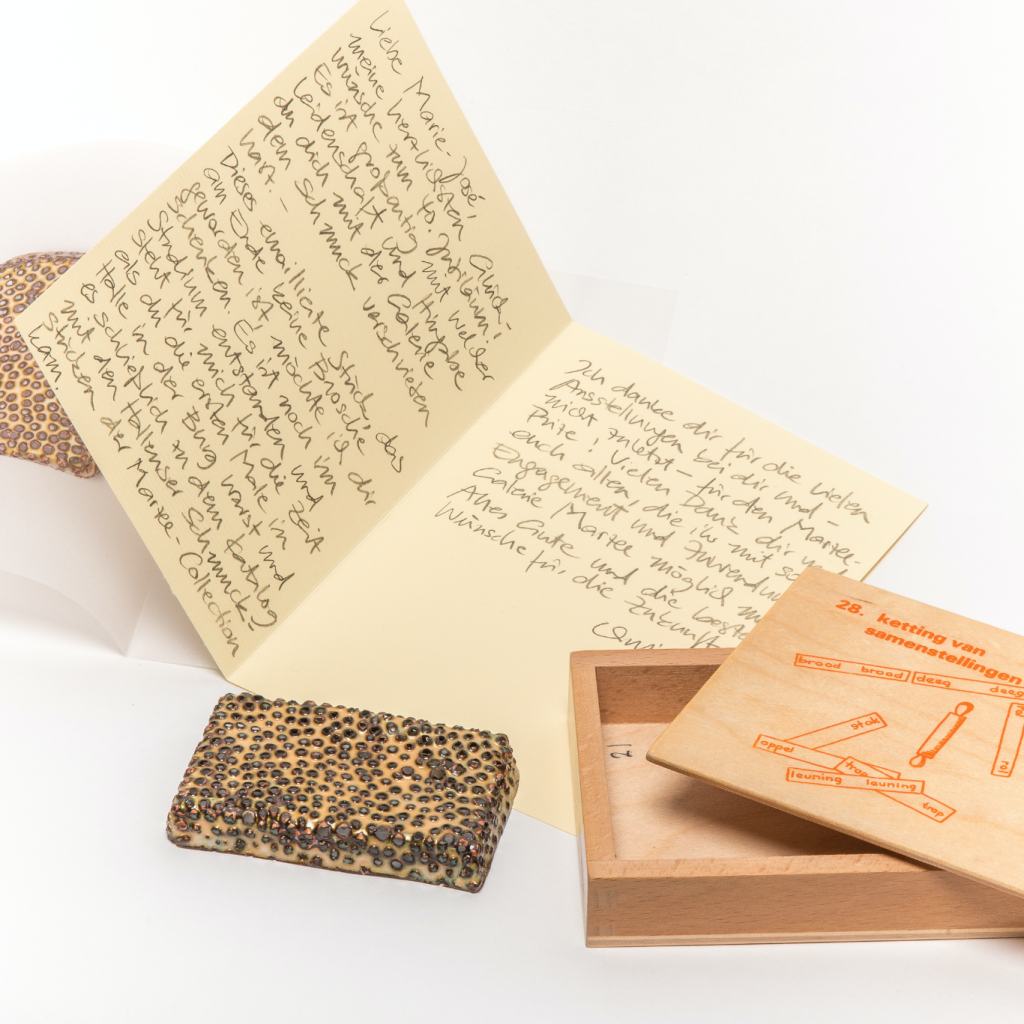 Liebe Marie-José,
meine herzlichsten Glück-
wünsche zum 40. Jubiläum!
Es ist großartig mit welcher
Leidenschaft und Hingabe
du dich mit der Galerie
dem Schmuck verschrieben
hast. –
Dieses emaillierte Stück, das
am Ende keine Brosche
geworden ist möchte ich dir
schenken. Es ist noch im
Studium entstanden und
steht für mich für die Zeit
als du die ersten Male in
Halle in der Burg warst und
es schließlich zu dem Katalog
mit den Hallenser Schmuck-
stücken der Marzee-Collection
kam.
Ich danke dir für die vielen
Ausstellungen bei dir und –
nicht zuletzt – für den Marzee-
Prize! Vielen Dank dir
euch allen, die ihr mit
Engagement und
Galerie Marzee möglich
Alles Gute und die
Wünsche für die Zukunft
21
28. ketting van
samenstellingen
brood brood deeg deeg
stok
appel
trap
leuning leuning
trap